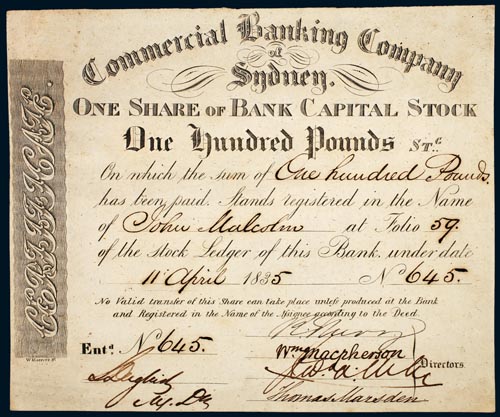 Commercial Banking Company
of
Sydney.
ONE SHARE OF BANK CAPITAL STOCK
One Hundred Pounds ST.G
On which the sum of One hundred Pounds
has been paid. Stands registered in the Name
of John Malcolm at Folio 59.
of the stock Ledger of this Bank, under date
11 April 1835 No 645.
No Valid transfer of this Share can take place unless produced at the Bank
and Registered in the Name of the Assignee according to the Deed.
Entd. No 645.
Wm Macpherson
Directors
Thomas Marsden
CERTIFICATE